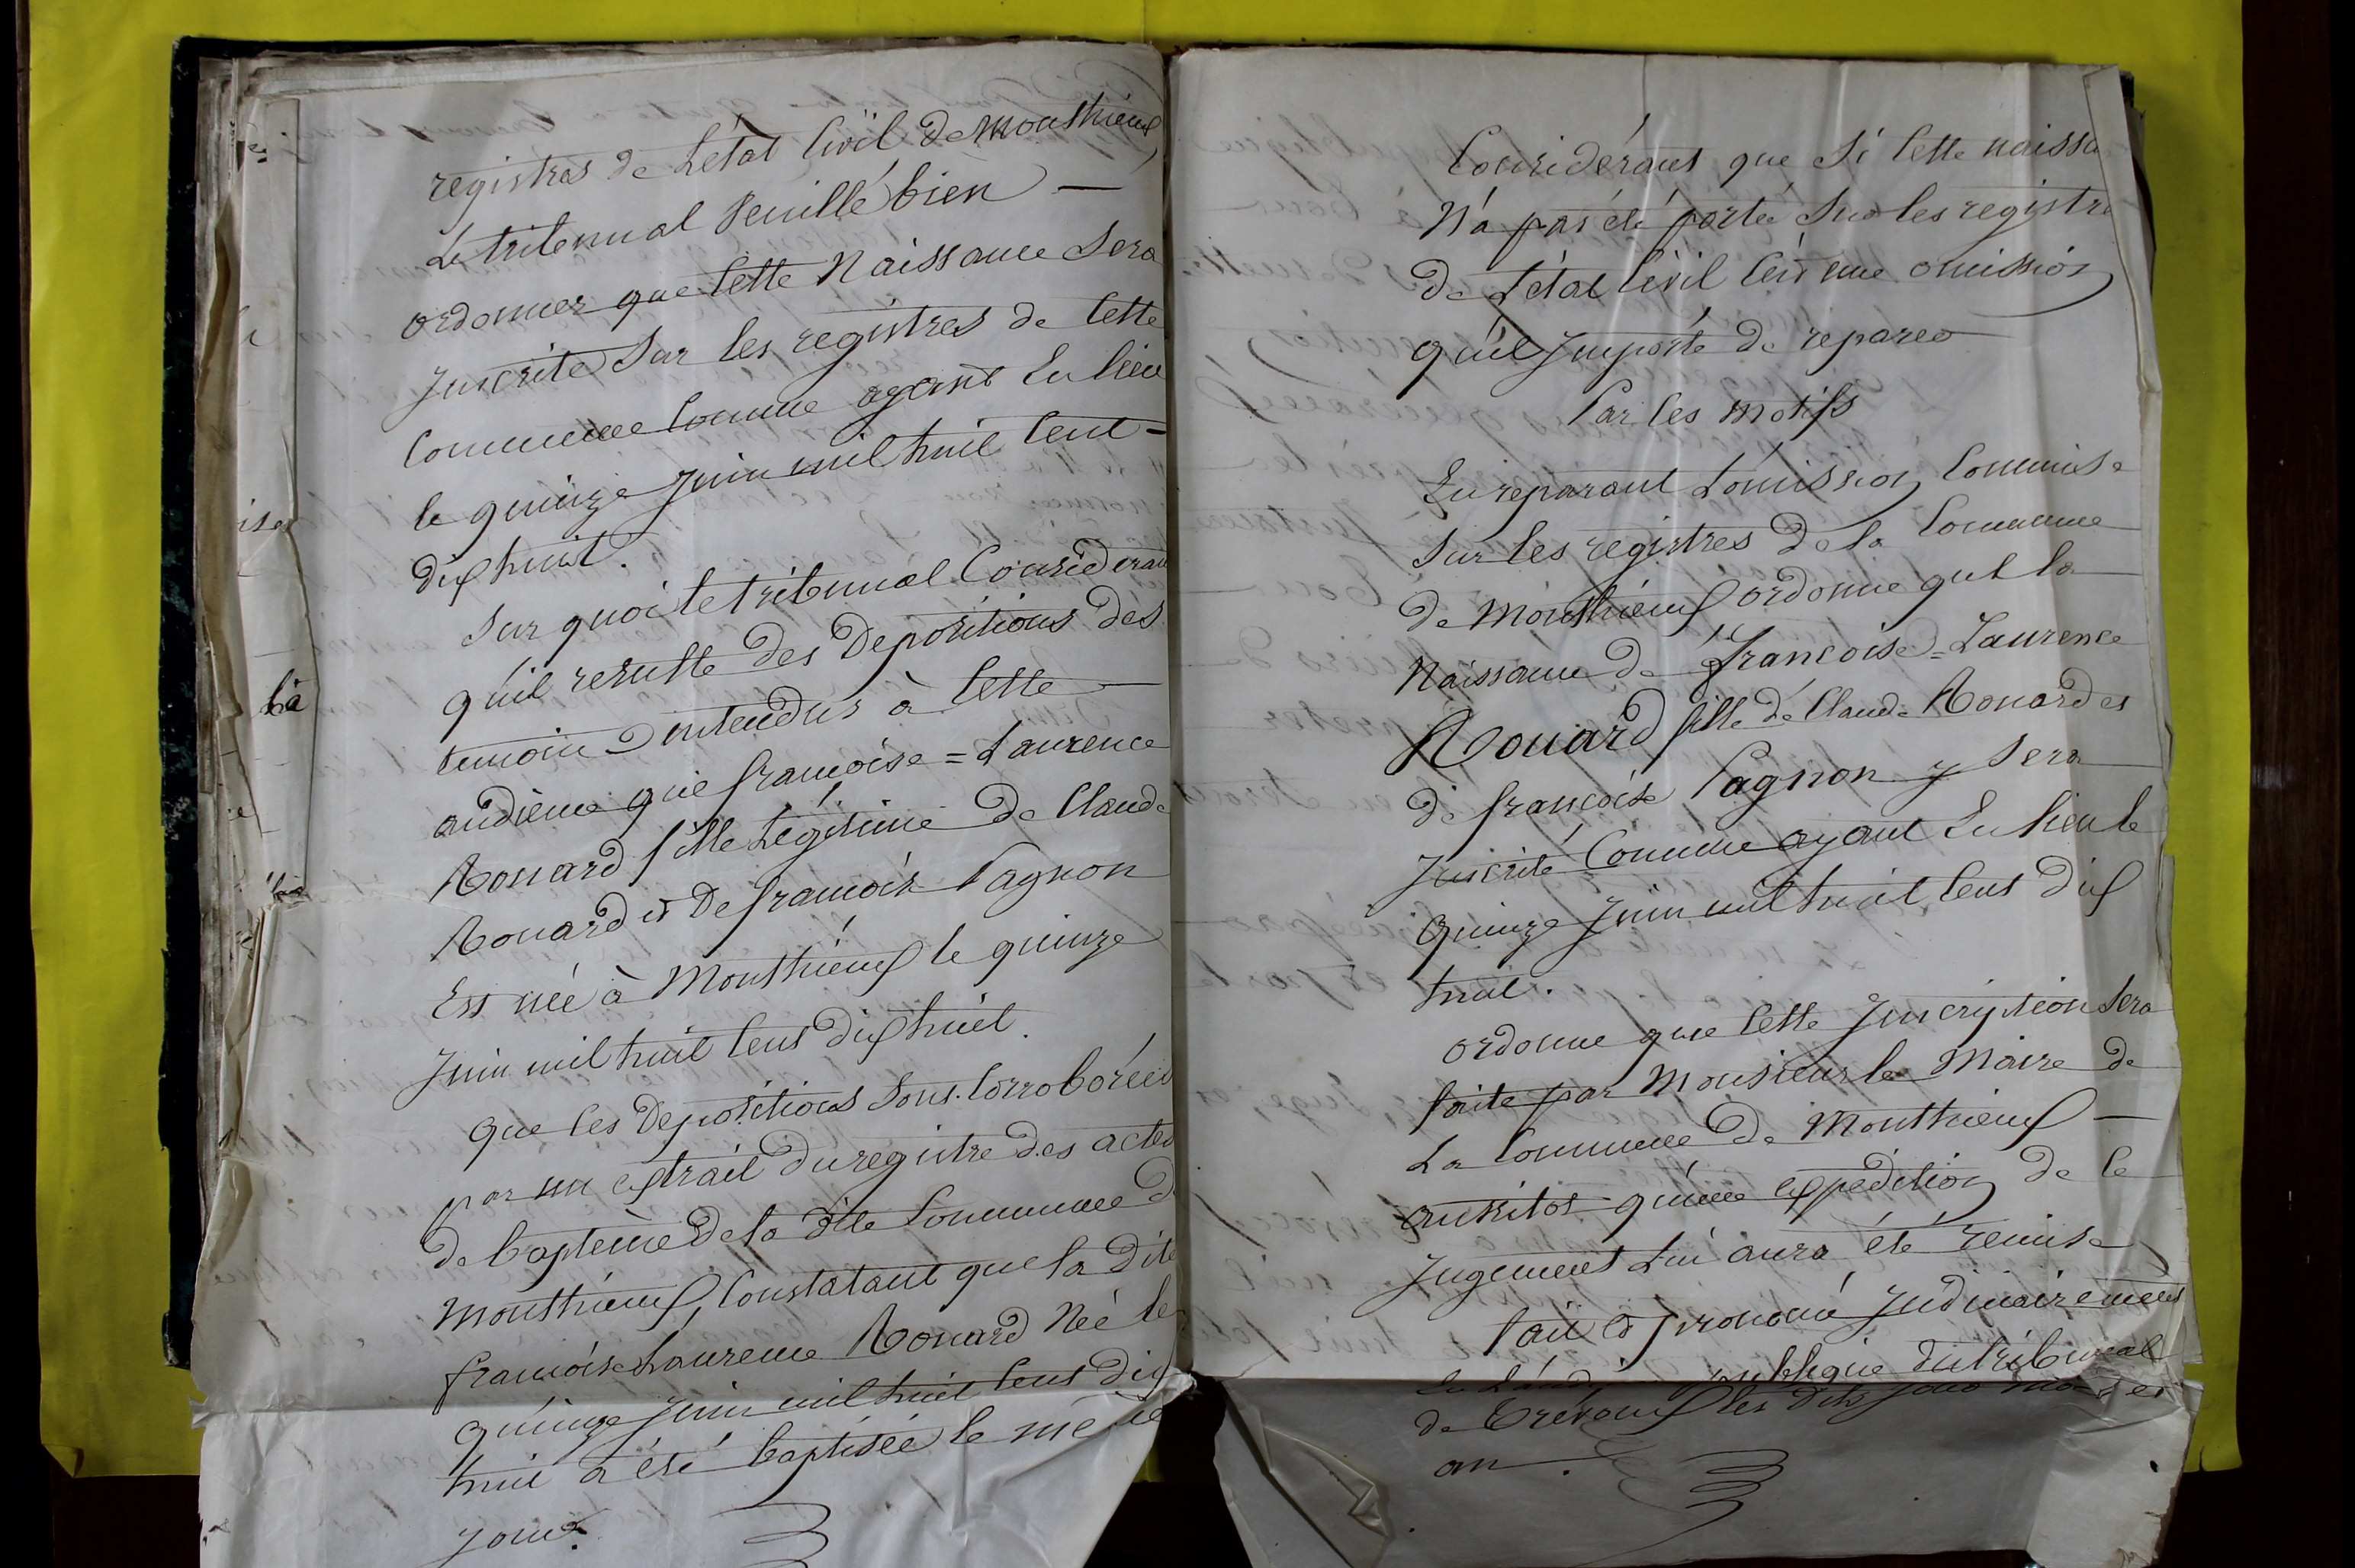 registres de L'état Civil de Monthieux
Le tribunal Veuille bien —
ordonner que Cette Naissance Sera
Inscrite Sur les registres de Cette
Commune Comme ayant Eu lieu
le quinze Juin mil huit Cent =
dix huit.
Sur quoi le tribunal Considerant
qu'il resulte des Depositions des
temoins Entendus à Cette —
audience que françoise = Laurence
Rouard fille Légitime de Claude
Rouard et De françoise Pagnon
Est née à Monthieux le quinze
Juin mil huit Cent dix huit.
que Ces Depositions Sont Corroborées
par un extrait du registre des actes
de baptême de la dite Commune de
Monthieux, Constatant que la Dite
françoise Laurence Rouard Née le
quinze Juin mil huit Cent dix
huit a été baptisée le même
Jour.
bà
Considérant que Si Cette naissa
N'a pas été portée Sur les registre
de L'état Civil C'est une omission
qu'il Importe de reparer
Par Ces motifs
En reparant L'omission Commise
Sur les registres de la Commune
de Monthieux ordonne que la
Naissance de françoise = Laurence
Rouard fille de Claude Rouard et
de françoise Pagnon y Sera
Inscrite Comme ayant Eu lieu le
quinze Juin mil huit Cent dix
huit.
ordonne que Cette Inscription Sera
faite par Monsieur le Maire de
La Commune de Monthieux —
aussitot qu'une expédition de Ce
Jugement Lui aura été remise
fait et prononcé Judiciairement
publique du tribunal
de Trévoux les dits Jour mois et
an.